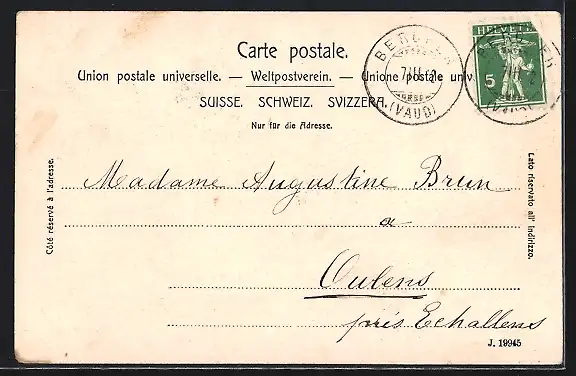 Carte postale.
Union postale universelle. — Weltpostverein. — Unione postale univ
SUISSE. SCHWEIZ. SVIZZERA.
Nur für die Adresse.
BERCHER
(VAUD)
HELVETIA
5
Côté réservé à l'adresse.
Lato riservato all' indirizzo.
Madame Augustine Brun
a
Oulens
près Echallens
J. 19945